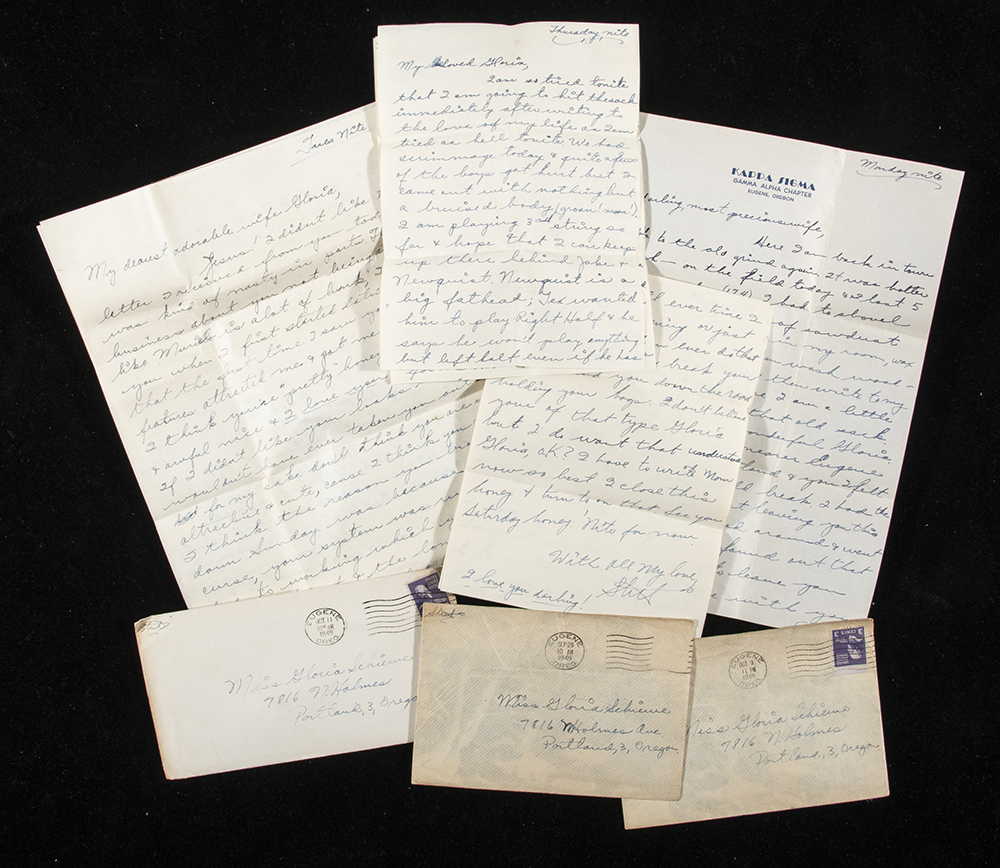 Thursday nite
My beloved Gloria,
I am so tired tonite
that I am going to hit the sack
immediately after writing to
the love of my life as I am
tired as hell tonite. We had
scrimmage today & quite a few
of the boys got hurt but I
came out with nothing but
a bruised body (groan! moan!).
I am playing 3rd string so
far & hope that I can keep
up there behind Jake &
Newquist. Newquist is a
big fathead; Tex wanted
him to play Right Half & he
says he won't play anything
but left half even if he has
Tues Nite
My dearest adorable wife Gloria,
Jesus! I didn't like
letter I received from you tod
was kind of nasty in parts. Th
business about you not being
like is a lot of
you when I first started
that the first time I saw you
features attracted me & got me
I think you're "pretty"
& awful nice & I love you
If I didn't like your looks
wouldn't have ever taken you
for my sake don't think you are
attractive & cute, cause I think you
I think the reason you
down Sunday was because
curse, your system was
working which
& the
KAPPA SIGMA
GAMMA ALPHA CHAPTER
EUGENE, OREGON
Monday nite,
darling most precious wife,
Here I am back in town
to the old grind again. It was hotter
on the field today & I lost 5
(174). I had to shovel
of sawdust
in my room, wax
wash wood-
then write to my
I am a little
that old sack.
wonderful Gloria
nearer Eugene
& you I felt
break I had the
leaving you this
around & went
found out that
to leave you
with you
ever
or just
ever do that
break your
you down the road
holding your bags. I don't believe
your of that type Gloria
but I do want that understood
Gloria, OK? I have to write Mom
now so best I close this
honey & turn to on that. See you
Saturday honey! 'Nite for now.
With All My Love,
I love you darling!
EUGENE
OCT 11
1946
OREG.
Miss Gloria Schiewe
7816 N. Holmes
Portland, 3, Orego
EUGENE
SEP 26
10 AM
1946
OREG.
Miss Gloria Schiewe
7816 N Holmes Ave
Portland, 3, Oregon
EUGENE
OCT 9
11 PM
1946
OREG.
3 CENTS 3
Miss Gloria Schiewe
7816 N. Holmes
Portland, 3, Oregon